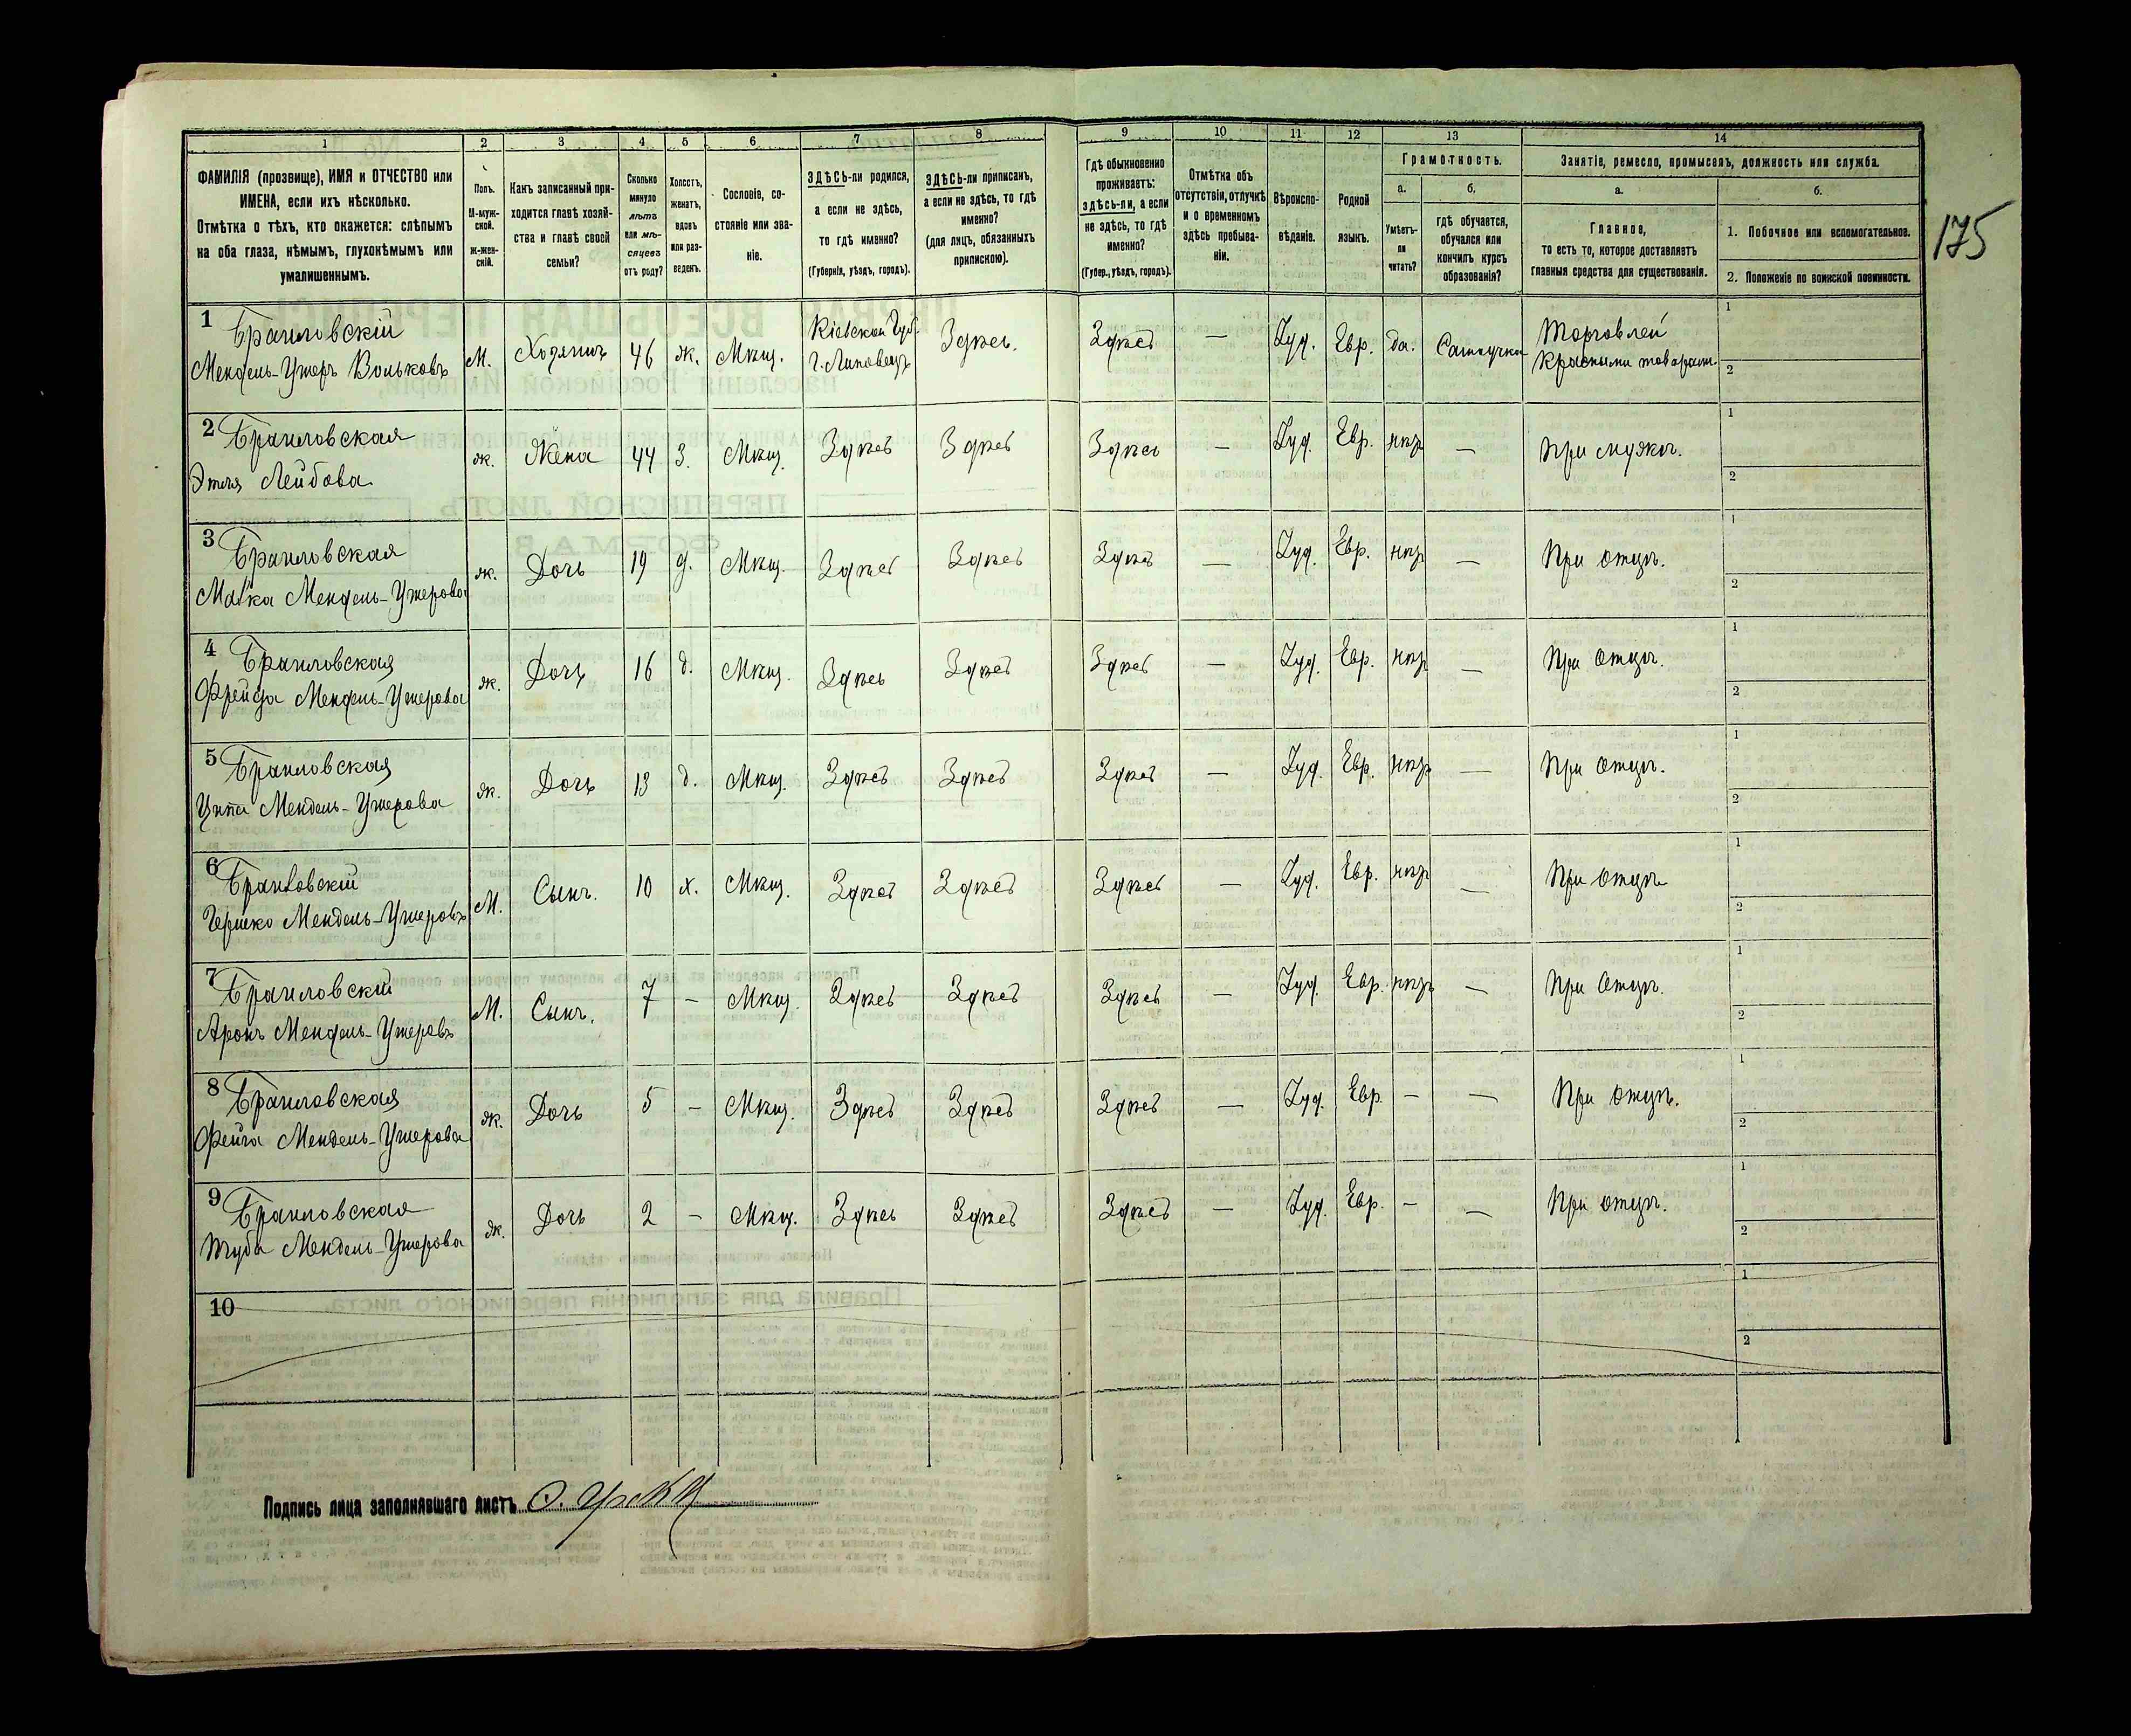 1 2 3 4 5 6 7 8 9 10 11 12 13 14
ФАМИЛІЯ (прозвище), ИМЯ и ОТЧЕСТВО или
ИМЕНА, если ихъ нѣсколько.
Отмѣтка о тѣхъ, кто окажется: слѣпымъ
на оба глаза, нѣмымъ, глухонѣмымъ или
умалишеннымъ.
Полъ.
М-муж-
ской.
Ж-жен-
скій.
Какъ записанный при-
ходится главѣ хозяй-
ства и главѣ своей
семьи?
Сколько
минуло
лѣтъ
или мѣ-
сяцевъ
отъ роду?
Холостъ,
женатъ,
вдовъ
или раз-
веденъ.
Сословіе, со-
стояніе или зва-
ніе.
ЗДѢСЬ-ли родился,
а если не здѣсь,
то гдѣ именно?
(Губернія, уѣздъ, городъ).
ЗДѢСЬ-ли приписанъ,
а если не здѣсь, то гдѣ
именно?
(для лицъ, обязанныхъ
припискою).
Гдѣ обыкновенно
проживаетъ:
здѣсь-ли, а если
не здѣсь, то гдѣ
именно?
(Губер., уѣздъ, городъ).
Отмѣтка объ
отсутствіи, отлучкѣ
и о временномъ
здѣсь пребыва-
ніи.
Вѣроиспо-
вѣданіе.
Родной
языкъ.
Грамотность.
а.
Умѣетъ-
ли
читать?
б.
гдѣ обучается,
обучался или
кончилъ курсъ
образованія?
Занятіе, ремесло, промыселъ, должность или служба.
а.
Главное,
то есть то, которое доставляетъ
главныя средства для существованія.
б.
1. Побочное или вспомогательное.
2. Положеніе по воинской повинности.
175
1 Браиловскій
Мендель-Ушеръ Вольковъ М. Хозяинъ 46 ж. Мѣщ. Кіевской Губ. г. Липовецъ Здѣсь. Здѣсь — Іуд. Евр. да. Самоучка Торговлей красными товарами 1 2
2 Браиловская
Этля Лейбова ж. Жена 44 З. Мѣщ. Здѣсь Здѣсь Здѣсь — Іуд. Евр. нѣт — При мужѣ. 1 2
3 Браиловская
Малка Мендель-Ушерова ж. Дочь 19 д. Мѣщ. Здѣсь Здѣсь Здѣсь — Іуд. Евр. нѣт — При отцѣ. 1 2
4 Браиловская
Фрейда Мендель-Ушерова ж. Дочь 16 д. Мѣщ. Здѣсь Здѣсь Здѣсь — Іуд. Евр. нѣт — При отцѣ. 1 2
5 Браиловская
Ципа Мендель-Ушерова ж. Дочь 13 д. Мѣщ. Здѣсь Здѣсь Здѣсь — Іуд. Евр. нѣт — При отцѣ. 1 2
6 Браиловскій
Гершко Мендель-Ушеровъ М. Сынъ. 10 х. Мѣщ. Здѣсь Здѣсь Здѣсь — Іуд. Евр. нѣт — При отцѣ 1 2
7 Браиловскій
Аронъ Мендель-Ушеровъ М. Сынъ. 7 — Мѣщ. Здѣсь Здѣсь Здѣсь — Іуд. Евр. нѣт — При отцѣ. 1 2
8 Браиловская
Фейга Мендель-Ушерова ж. Дочь 5 — Мѣщ. Здѣсь Здѣсь Здѣсь — Іуд. Евр — — При отцѣ. 1 2
9 Браиловская
Туба Мендель-Ушерова ж. Дочь 2 — Мѣщ. Здѣсь Здѣсь Здѣсь — Іуд. Евр. — — При отцѣ. 1 2
10 1 2
Подпись лица заполнявшаго листъ